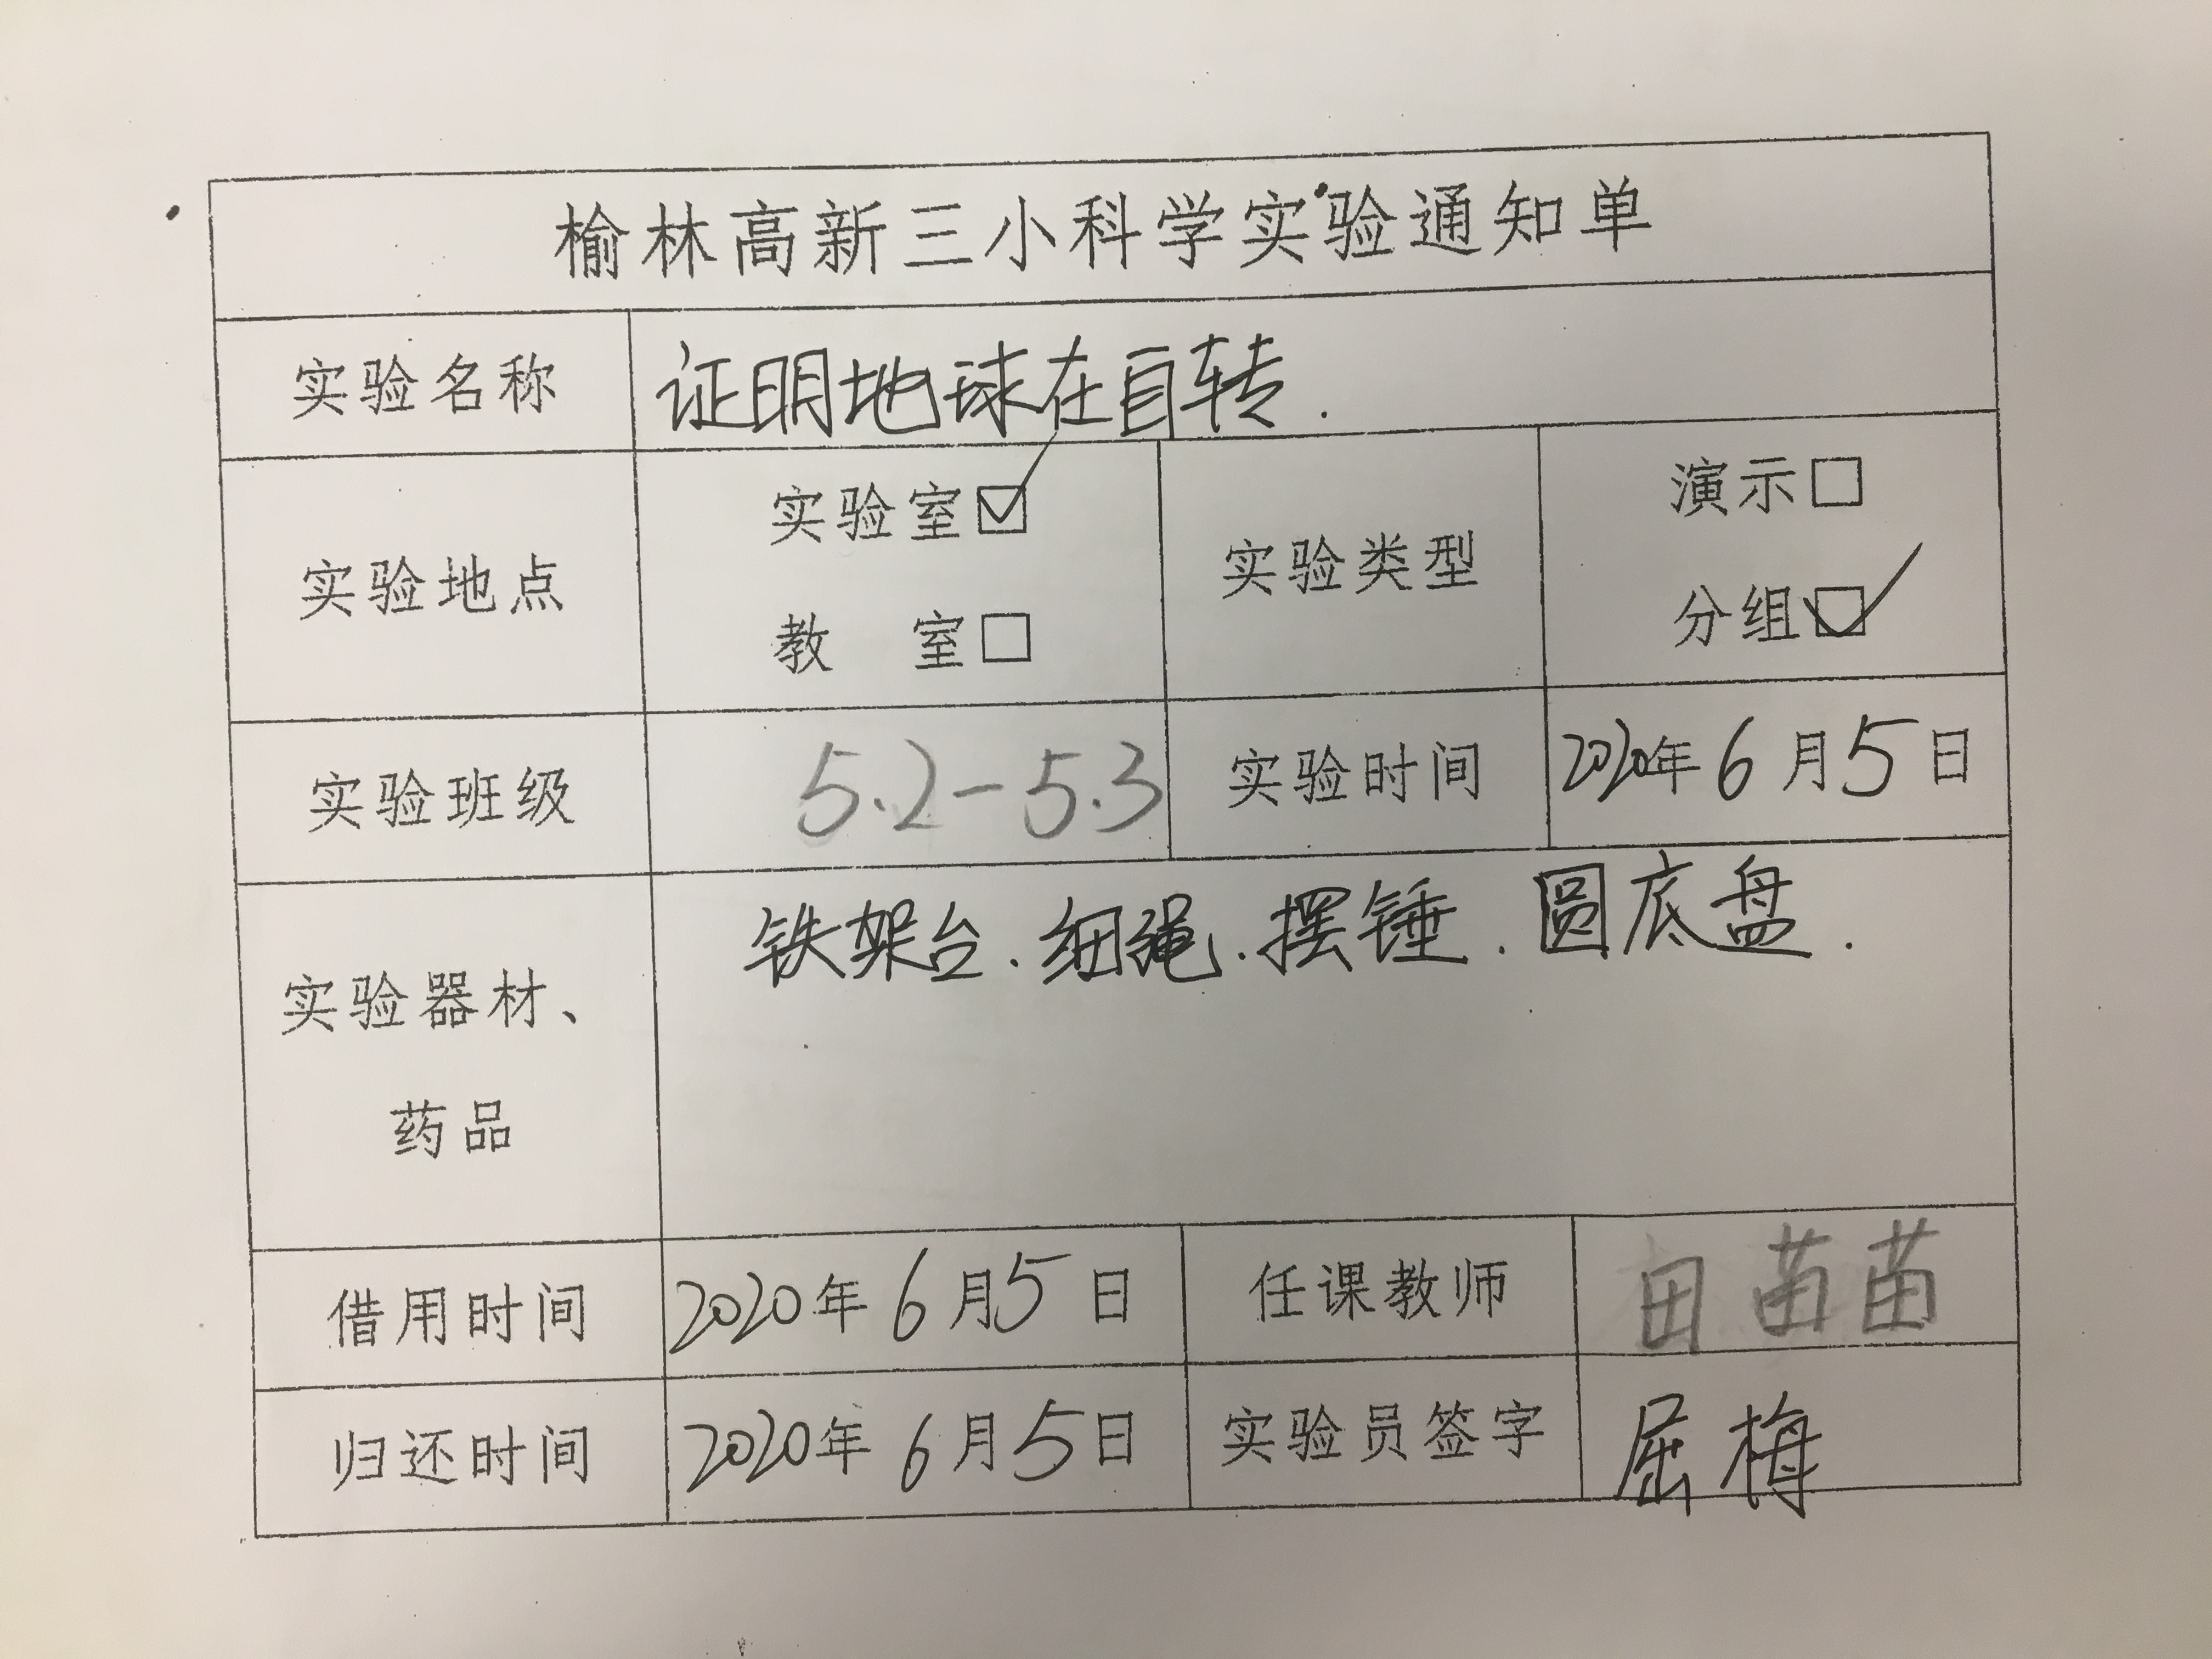 榆林高新三小科学实验通知单
实验名称 证明地球在自转.
实验地点 实验室☑ 教 室□ 实验类型 演示□ 分组☑
实验班级 5.2-5.3 实验时间 2020年6月5日
实验器材、药品 铁架台.细绳.摆锤.圆底盘.
借用时间 2020年6月5日 任课教师 田苗苗
归还时间 2020年6月5日 实验员签字 屈梅